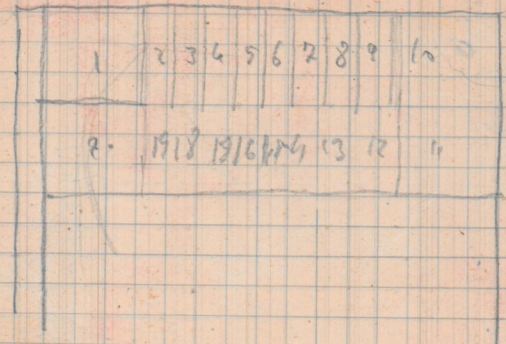 1 2 3 4 5 6 7 8 9 10
2. 19 18 17 16 15 14 13 12 11